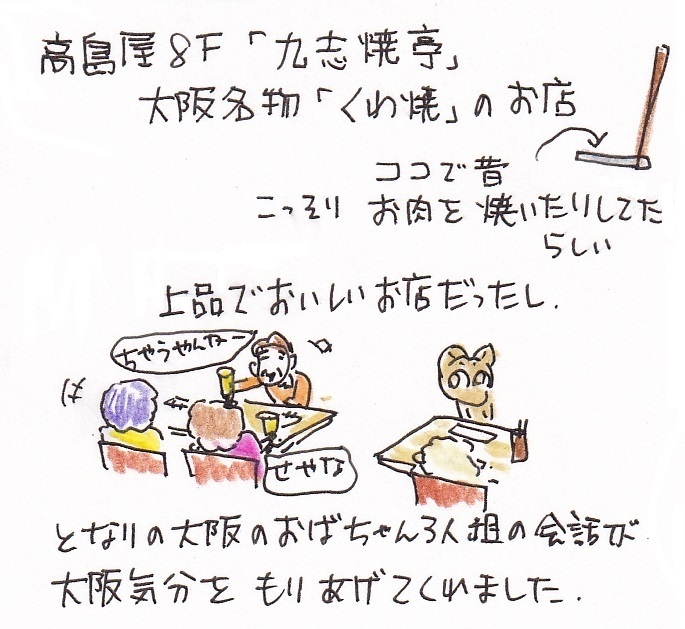 高島屋8F「九志焼亭」
大阪名物「くわ焼」のお店
ココで昔
こっそり お肉を焼いたりしてた
らしい
上品でおいしいお店だったし.
ちゃうやんなー
せやな
となりの大阪のおばちゃん3人組の会話が
大阪気分をもりあげてくれました.